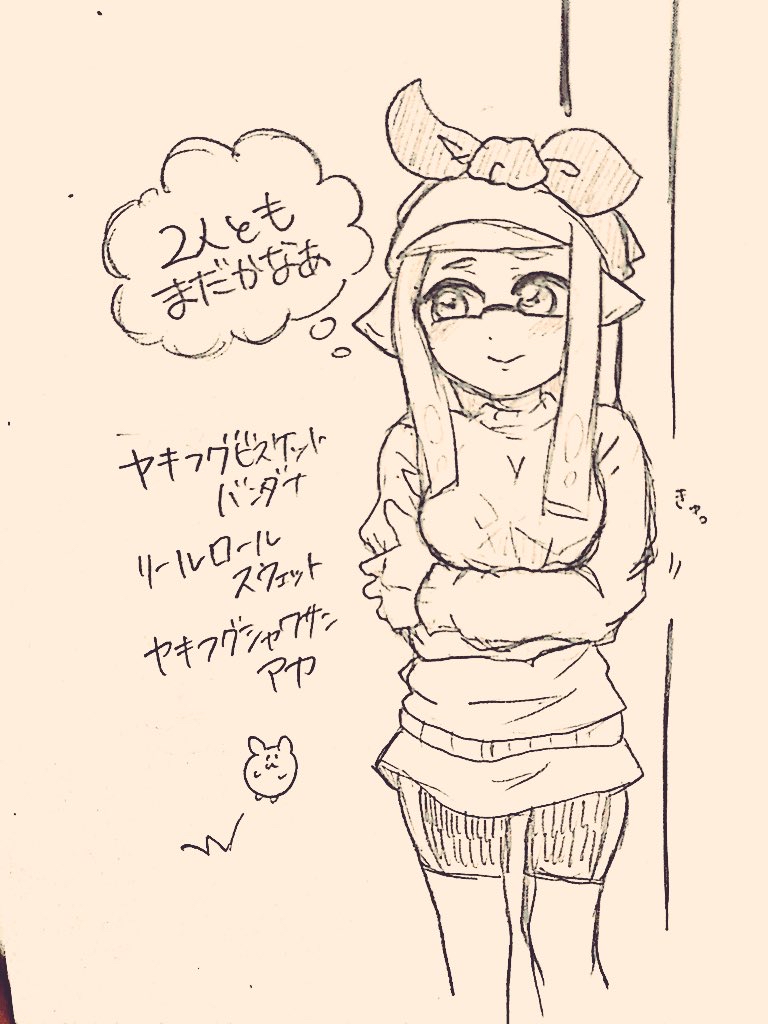 2人とも
まだかなあ
ヤキフグビスケット
バンダナ
リールロール
スウェット
ヤキフグシャワサン
アカ
きゅっ